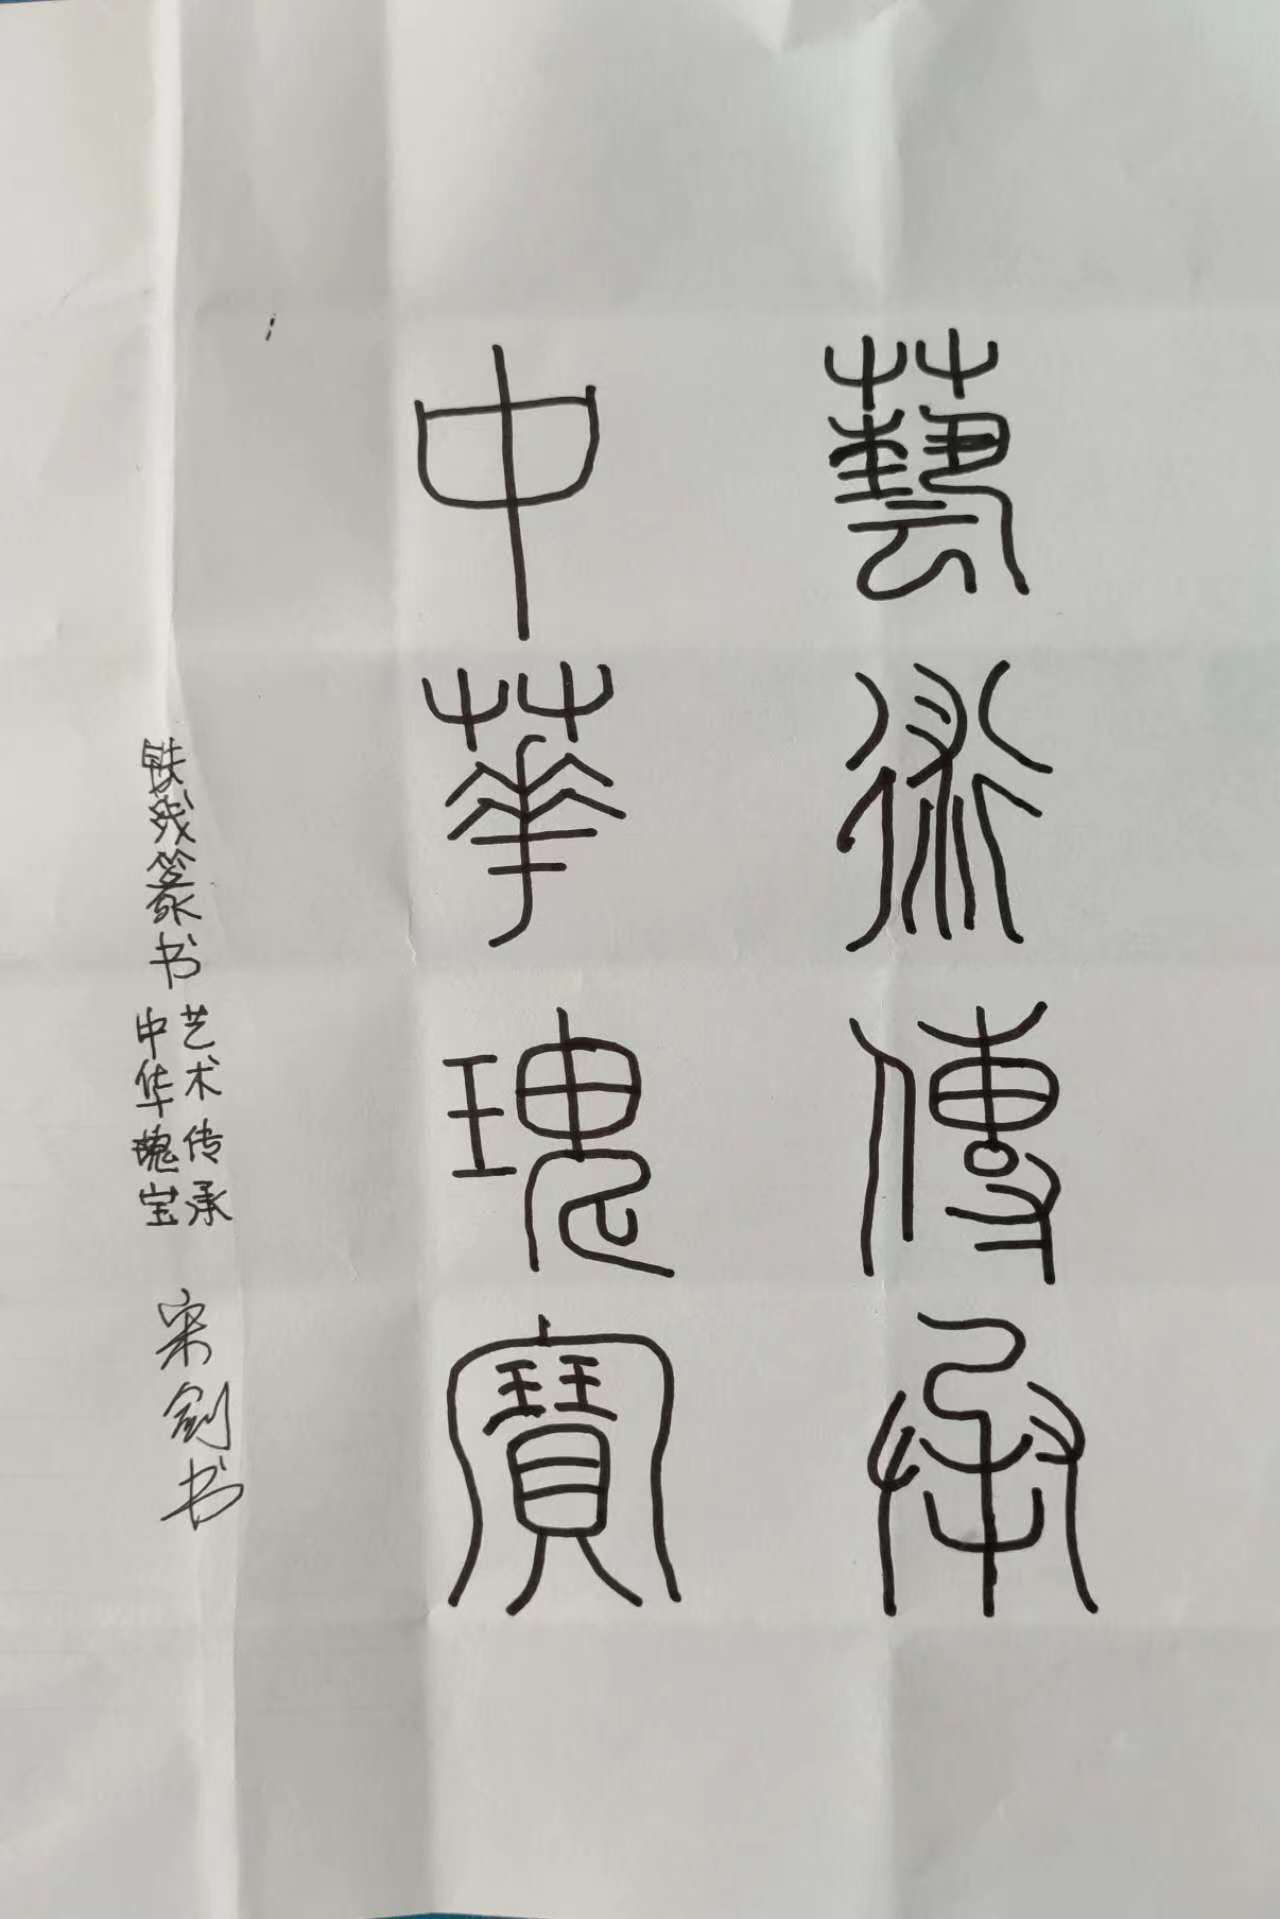 藝術傳承
中華瑰寶
铁线篆书
艺术传承
中华瑰宝
宋剑书